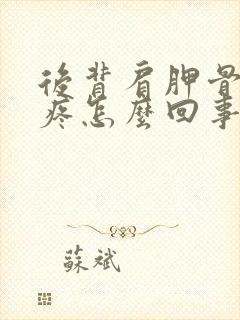 後背肩胛骨
疼怎麼回事
蘇斌